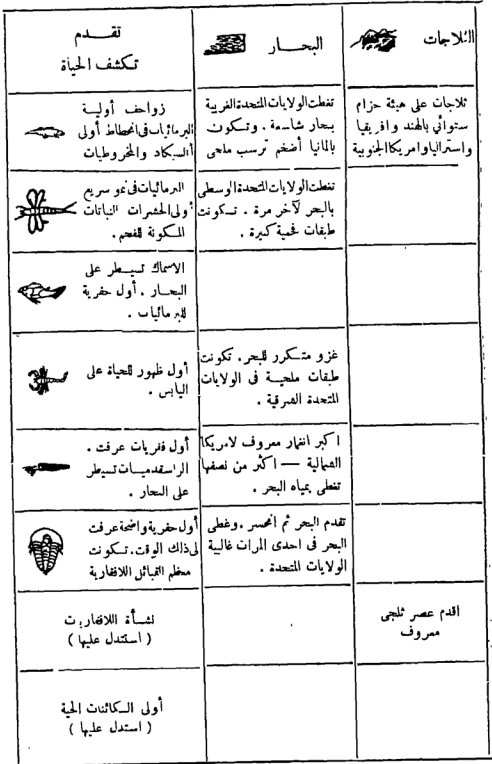 الثلاجات
البحـــار
تقـــدم
تكشف الحياة
ثلاجات على هيئة حزام
ستوائي بالهند وافريقيا
واستراليا وامريكا الجنوبية
تغطت الولايات المتحدة الغربية
ببحار شاسعة . وتكون
بألمانيا أضخم ترسب ملحى
زواحف أولية
البرمائيات فى انحطاط أولى
السيكاد والمخروطيات
تغطت الولايات المتحدة الوسطى
بالبحر لآخر مرة . تـكونت
طبقات فحمية كبيرة .
البرمائيات فى نمو سريع
أولى الحشرات النباتات
المـكونة للفحم .
الاسماك تسيـطر على
البحـار . أول حفرية
للبرمائيات .
غزو متكـرر للبحر . تكونت
طبقات ملحيـة فى الولايات
المتحدة الشرقية .
أول ظهور للحياة على
اليابس .
اكبر انغمار معروف لامريكا
الشمالية — اكثر من نصفها
تغطى بمياه البحر .
أول فقريات عرفت .
الراسقدميـات تسيطر
على البحار .
تقدم البحر ثم انحسر . وغطى
البحر فى احدى المرات غالبية
الولايات المتحدة .
أول حفرية واضحة عرفت
فى ذلك الوقت . تـكونت
معظم القبائل اللافقارية
اقدم عصر ثلجى
معروف
نشـأة اللافقاريات
( استدل عليها )
أولى الـكائنات الحية
( استدل عليها )